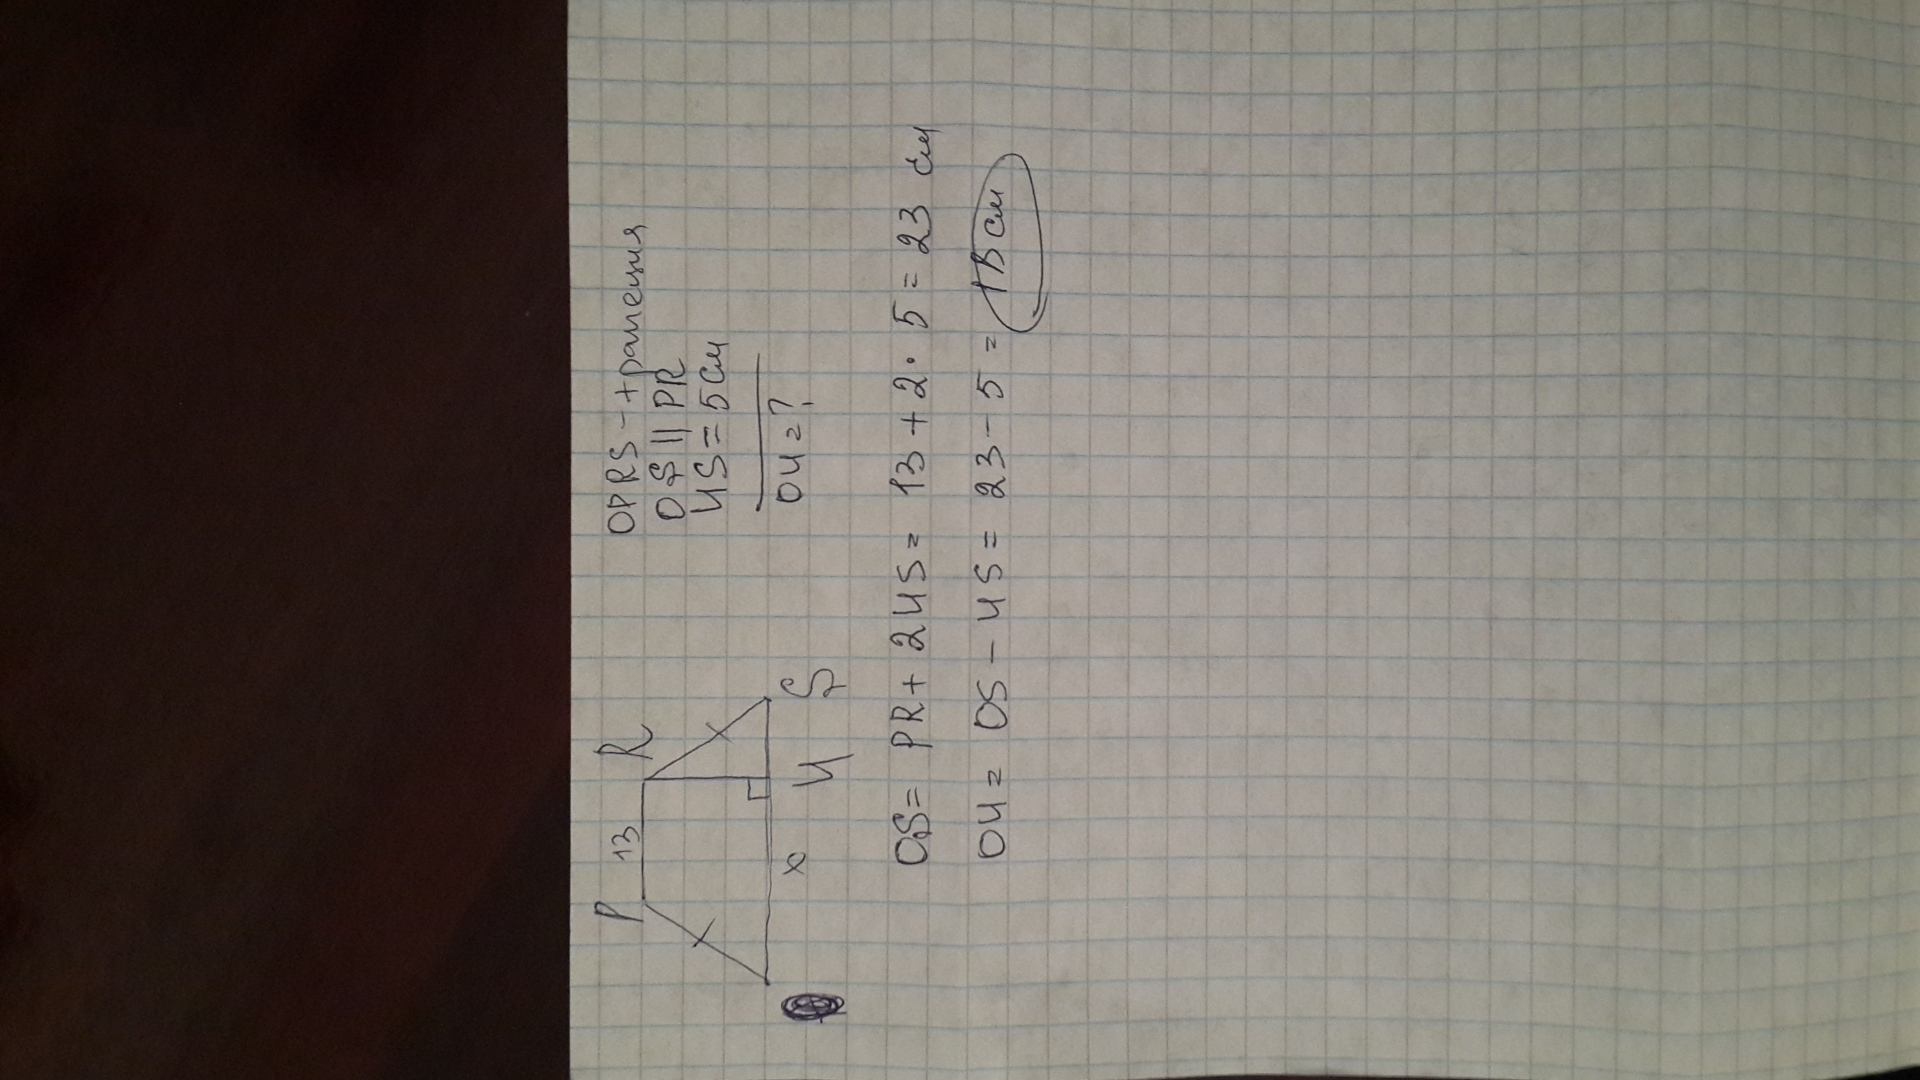 P 13 R
x U S
OPRS - трапеция
OS || PR
US = 5 см
OU = ?
OS = PR + 2US = 13 + 2 · 5 = 23 см
OU = OS - US = 23 - 5 = 18 см